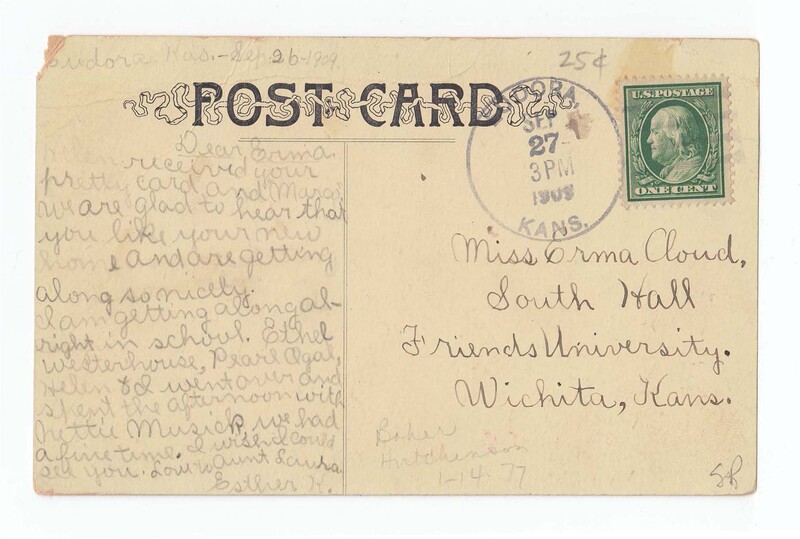 Eudora, Kas. - Sep. 26 - 1909.
25¢
POST CARD
EUDORA,
SEP
27
3 PM
1909
KANS.
U.S. POSTAGE
ONE CENT
Dear Erma.
Helen received your
pretty card and
We are glad to hear that
you like your new
home and are getting
along so nicely.
I am getting along al-
right in school. Ethel
Westerhouse, Pearl Ogal,
Helen & I went over and
spent the afternoon with
Nettie Musick, we had
a fine time. I wish I could
see you. Love to Aunt Laura.
Esther K.
Miss Erma Cloud,
South Hall
Friends University.
Wichita, Kans.
Baker
Hutchinson
1-14-77